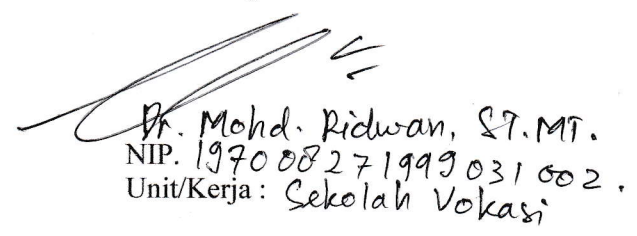 Dr. Mohd. Ridwan, ST.MT.
NIP. 197008271999031002.
Unit/Kerja : Sekolah Vokasi